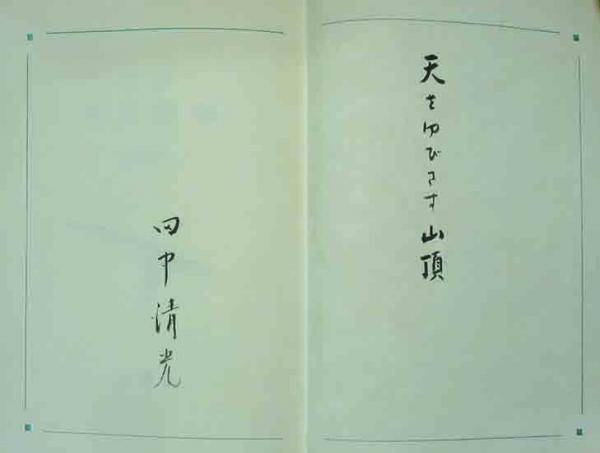 天をゆびさす山頂
田中清光